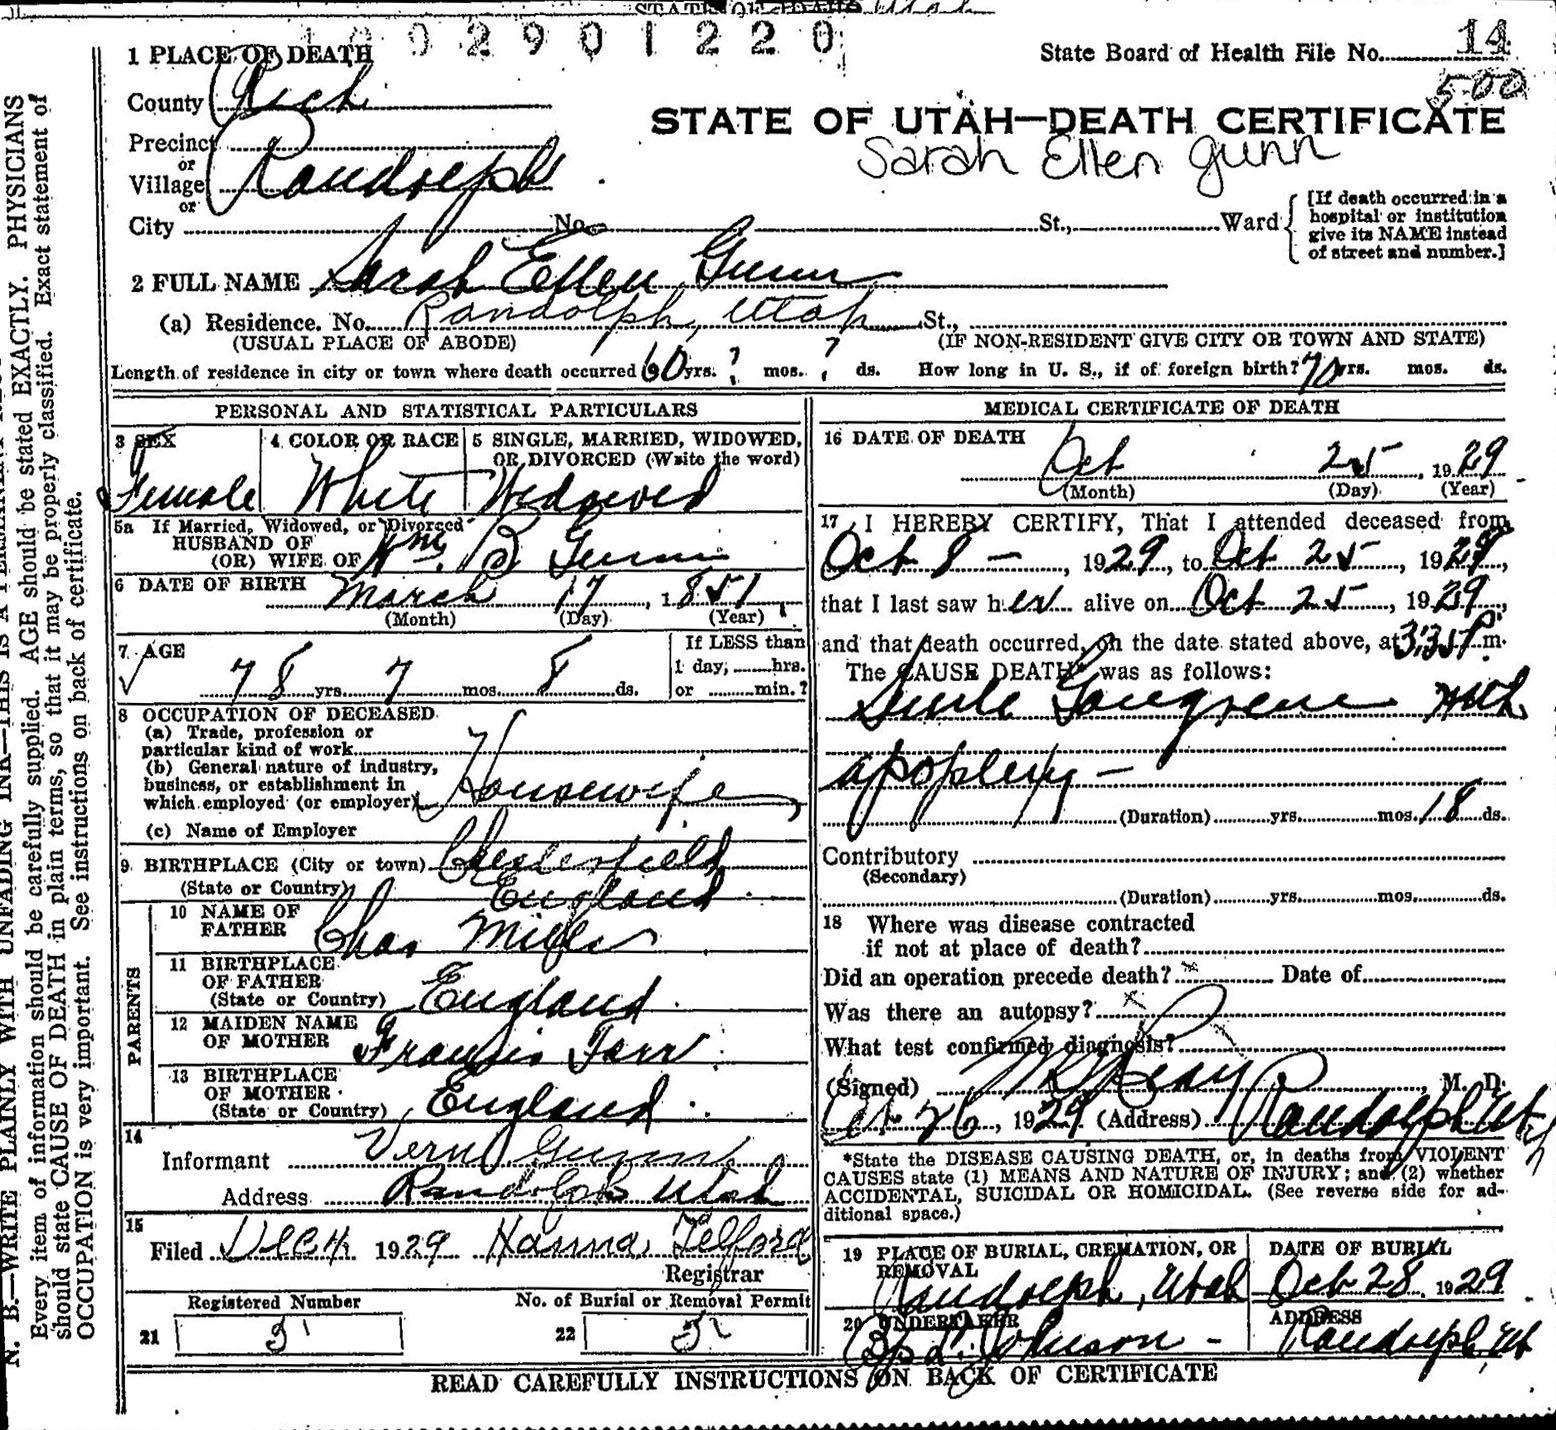 STATE OF IDAHO Utah
1092901220
1 PLACE OF DEATH
State Board of Health File No. 14
500
County Rich
STATE OF UTAH—DEATH CERTIFICATE
Sarah Ellen Gunn
Precinct
or
Village Randolph
or
City No. St., Ward
[If death occurred in a
hospital or institution
give its NAME instead
of street and number.]
2 FULL NAME Sarah Ellen Gunn
(a) Residence. No. Randolph, Utah St.,
(USUAL PLACE OF ABODE) (IF NON-RESIDENT GIVE CITY OR TOWN AND STATE)
Length of residence in city or town where death occurred 60 yrs. ? mos. ? ds. How long in U. S., if of foreign birth? 70 yrs. mos. ds.
PERSONAL AND STATISTICAL PARTICULARS
3 SEX 4 COLOR OR RACE 5 SINGLE, MARRIED, WIDOWED,
OR DIVORCED (Write the word)
Female White Widowed
5a If Married, Widowed, or Divorced
HUSBAND OF
(OR) WIFE OF Wm. B Gunn
6 DATE OF BIRTH March 17, 1851
(Month) (Day) (Year)
7 AGE
If LESS than
1 day, hrs.
78 yrs. 7 mos. 8 ds. or min.?
8 OCCUPATION OF DECEASED
(a) Trade, profession or
particular kind of work
(b) General nature of industry,
business, or establishment in
which employed (or employer) Housewife
(c) Name of Employer
9 BIRTHPLACE (City or town) Chesterfield
(State or Country) England
PARENTS
10 NAME OF
FATHER Chas Mills
11 BIRTHPLACE
OF FATHER
(State or Country) England
12 MAIDEN NAME
OF MOTHER Francis Tarr
13 BIRTHPLACE
OF MOTHER
(State or Country) England
14
Informant Vern Gunn
Address Randolph Utah
15
Filed Dec 4, 1929 Hanna Telford
Registrar
Registered Number No. of Burial or Removal Permit
21 3 22 5
MEDICAL CERTIFICATE OF DEATH
16 DATE OF DEATH
Oct 25, 1929
(Month) (Day) (Year)
17 I HEREBY CERTIFY, That I attended deceased from
Oct 8 —, 1929, to Oct 25, 1929,
that I last saw her alive on Oct 25, 1929,
and that death occurred, on the date stated above, at 3:35 P.m.
The CAUSE DEATH* was as follows:
Senile Gangrene with
apoplexy —
(Duration) yrs. mos. 18 ds.
Contributory
(Secondary)
(Duration) yrs. mos. ds.
18 Where was disease contracted
if not at place of death?
Did an operation precede death? x Date of
Was there an autopsy? x
What test confirmed diagnosis?
(Signed) Reay, M. D.
Oct 26, 1929 (Address) Randolph Utah
*State the DISEASE CAUSING DEATH, or, in deaths from VIOLENT
CAUSES state (1) MEANS AND NATURE OF INJURY; and (2) whether
ACCIDENTAL, SUICIDAL OR HOMICIDAL. (See reverse side for ad-
ditional space.)
19 PLACE OF BURIAL, CREMATION, OR DATE OF BURIAL
REMOVAL
Randolph, Utah Oct 28 1929
20 UNDERTAKER ADDRESS
Johnson - Randolph, Ut
READ CAREFULLY INSTRUCTIONS ON BACK OF CERTIFICATE
N. B.—WRITE PLAINLY WITH UNFADING INK—THIS IS A PERMANENT
Every item of information should be carefully supplied. AGE should be stated EXACTLY. PHYSICIANS
should state CAUSE OF DEATH in plain terms, so that it may be properly classified. Exact statement of
OCCUPATION is very important. See instructions on back of certificate.